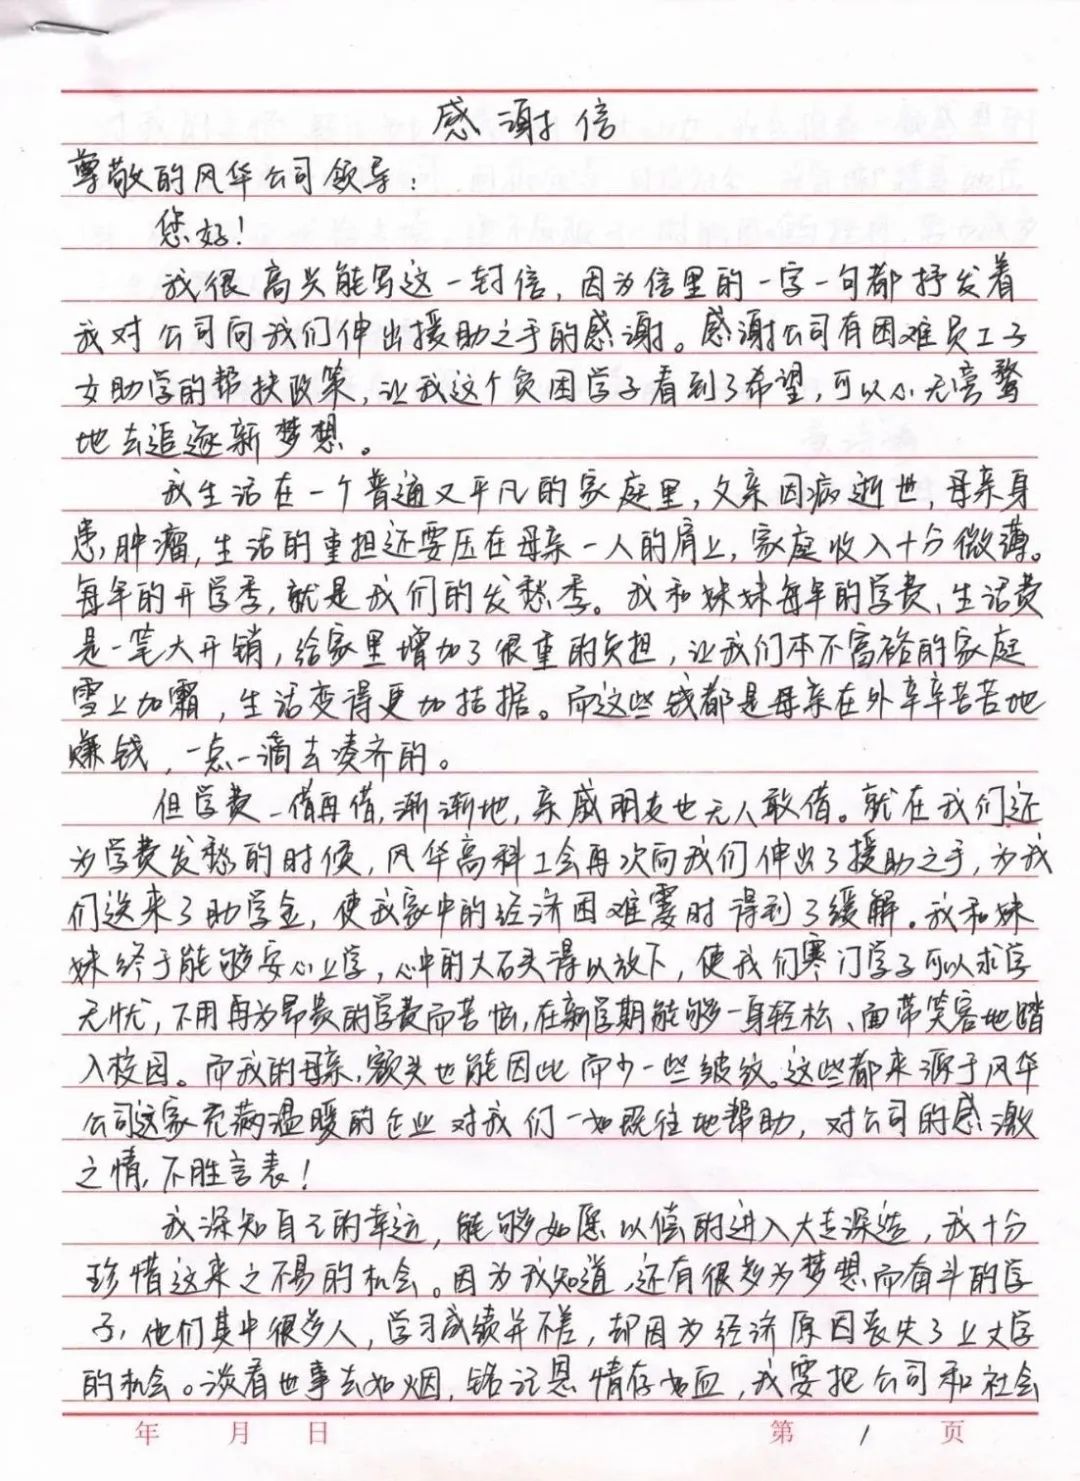 感谢信
尊敬的风华公司领导：
您好！
我很高兴能写这一封信，因为信里的一字一句都抒发着
我对公司向我们伸出援助之手的感谢。感谢公司有困难员工子
女助学的帮扶政策，让我这个贫困学子看到了希望，可以心无旁骛
地去追逐新梦想。
我生活在一个普通又平凡的家庭里，父亲因病逝世，母亲身
患肿瘤，生活的重担还要压在母亲一人的肩上，家庭收入十分微薄。
每年的开学季，就是我们的发愁季。我和妹妹每年的学费、生活费
是一笔大开销，给家里增加了很重的负担，让我们本不富裕的家庭
雪上加霜，生活变得更加拮据。而这些钱都是母亲在外辛辛苦苦地
赚钱，一点一滴去凑齐的。
但学费一借再借，渐渐地，亲戚朋友也无人敢借。就在我们还
为学费发愁的时候，风华高科工会再次向我们伸出了援助之手，为我
们送来了助学金，使我家中的经济困难霎时得到了缓解。我和妹
妹终于能够安心上学，心中的大石头得以放下，使我们寒门学子可以求学
无忧，不用再为昂贵的学费而苦恼，在新学期能够一身轻松、面带笑容地踏
入校园。而我的母亲，额头也能因此而少一些皱纹。这些都来源于风华
公司这家充满温暖的企业对我们一如既往地帮助，对公司的感激
之情，不胜言表！
我深知自己的幸运，能够如愿以偿的进入大专深造，我十分
珍惜这来之不易的机会。因为我知道，还有很多为梦想而奋斗的学
子，他们其中很多人，学习成绩并不差，却因为经济原因丧失了上大学
的机会。淡看世事去如烟，铭记恩情存如血，我要把公司和社会
年 月 日 第 1 页